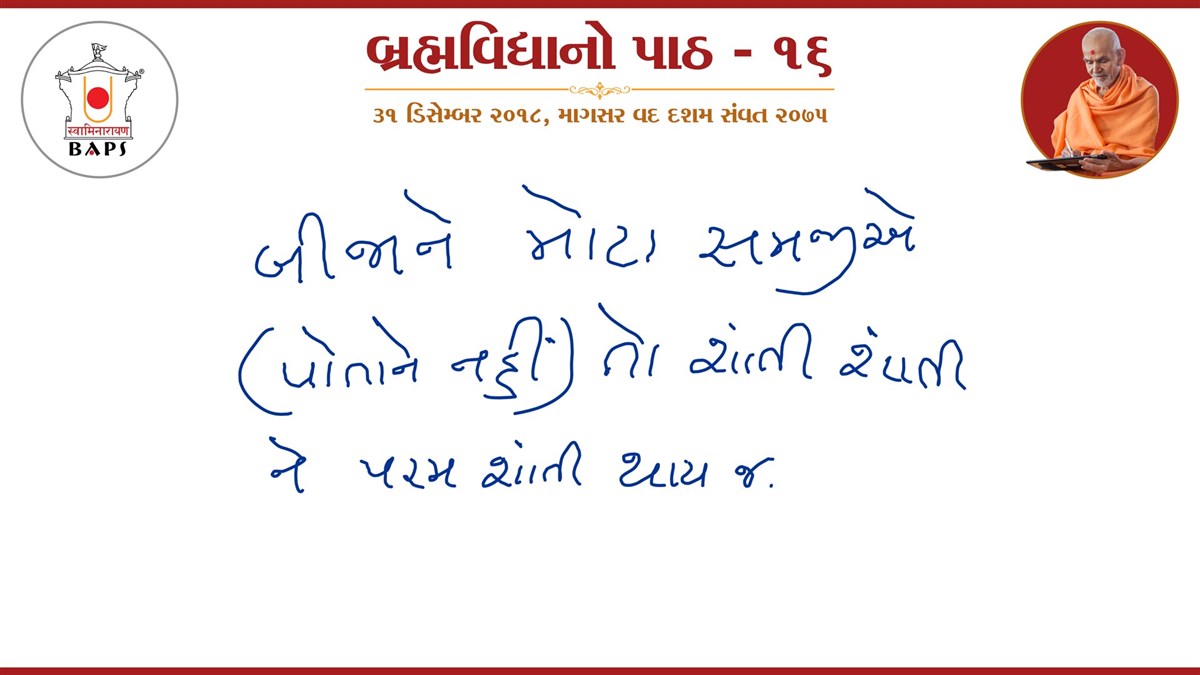 બ્રહ્મવિદ્યાનો પાઠ - ૧૬
૩૧ ડિસેમ્બર ૨૦૧૮, માગસર વદ દશમ સંવત ૨૦૭૫
®
स्वामिनारायण
BAPS
બીજાને મોટા સમજીએ
(પોતાને નહીં) તો શાંતી
ને પરમ શાંતી થાય જ.